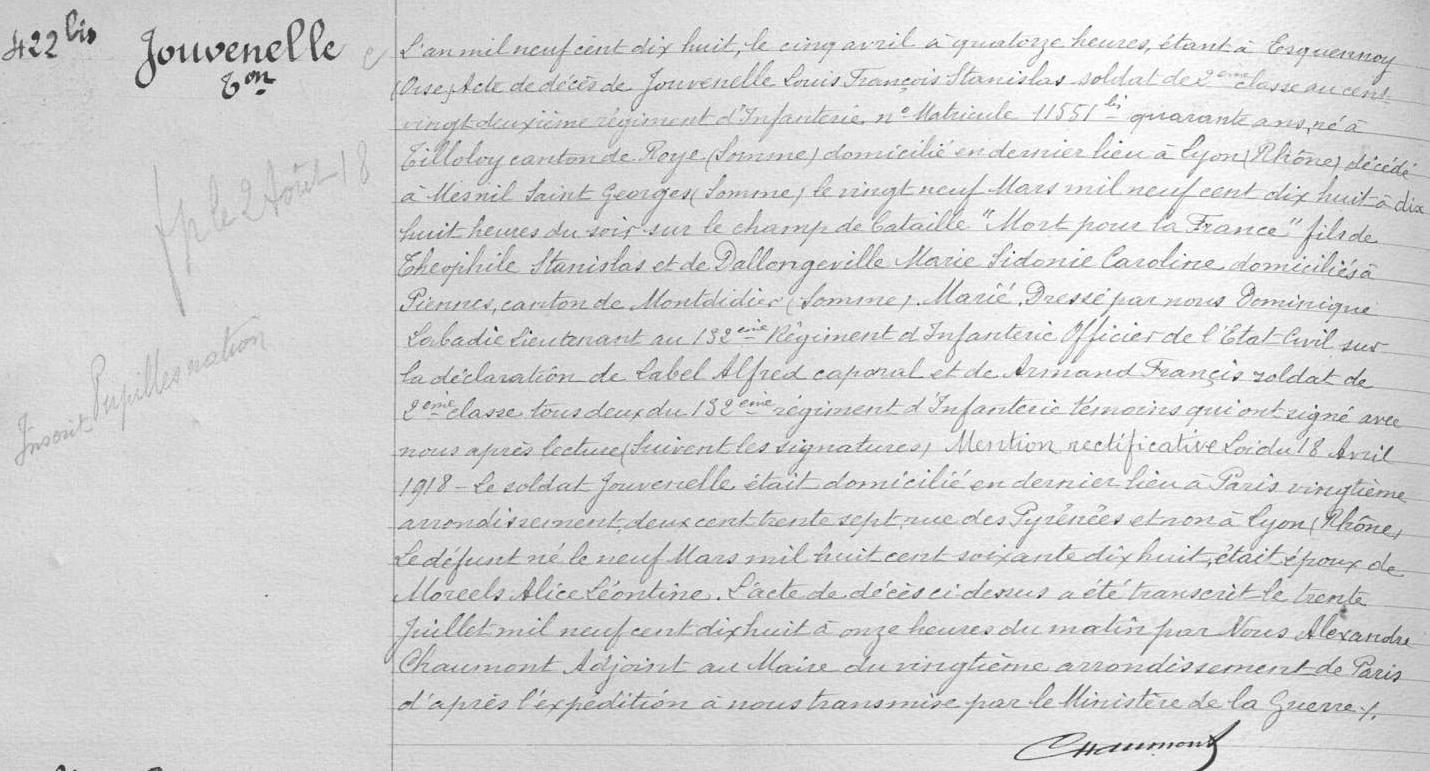 422 bis
Jouvenelle
Ton
fp le 2 Août 18
Inscrit Pupilles nation
L'an mil neuf cent dix huit, le cinq avril à quatorze heures, étant à Esquennoy
(Oise) Acte de décès de Jouvenelle Louis François Stanislas soldat de 2eme classe au cent-
vingt deuxième régiment d'Infanterie, no Matricule 11551 bis quarante ans, né à
Tilloloy canton de Roye (Somme) domicilié en dernier lieu à Lyon (Rhône) décédé
à Mesnil Saint Georges (Somme) le vingt neuf Mars mil neuf cent dix huit à dix
huit heures du soir sur le champ de bataille "Mort pour la France" fils de
Théophile Stanislas et de Dallongeville Marie Sidonie Caroline, domiciliés à
Piennes, canton de Montdidier (Somme). Marié. Dressé par nous Dominique
Labadie Lieutenant au 132eme Régiment d'Infanterie Officier de l'Etat-Civil sur
la déclaration de Label Alfred caporal et de Armand Francis soldat de
2eme classe tous deux du 132eme régiment d'Infanterie témoins qui ont signé avec
nous après lecture (Suivent les signatures) Mention rectificative Loi du 18 Avril
1918 - Le soldat Jouvenelle était domicilié en dernier lieu à Paris vingtième
arrondissement, deux cent trente sept, rue des Pyrénées et non à Lyon (Rhône)
Le défunt né le neuf Mars mil huit cent soixante dix huit, était époux de
Moreels Alice Léontine. L'acte de décès ci-dessus a été transcrit le trente
Juillet mil neuf cent dix huit à onze heures du matin par Nous Alexandre
Chaumont Adjoint au Maire du vingtième arrondissement de Paris
d'après l'expédition à nous transmise par le Ministère de la Guerre /.
Chaumont